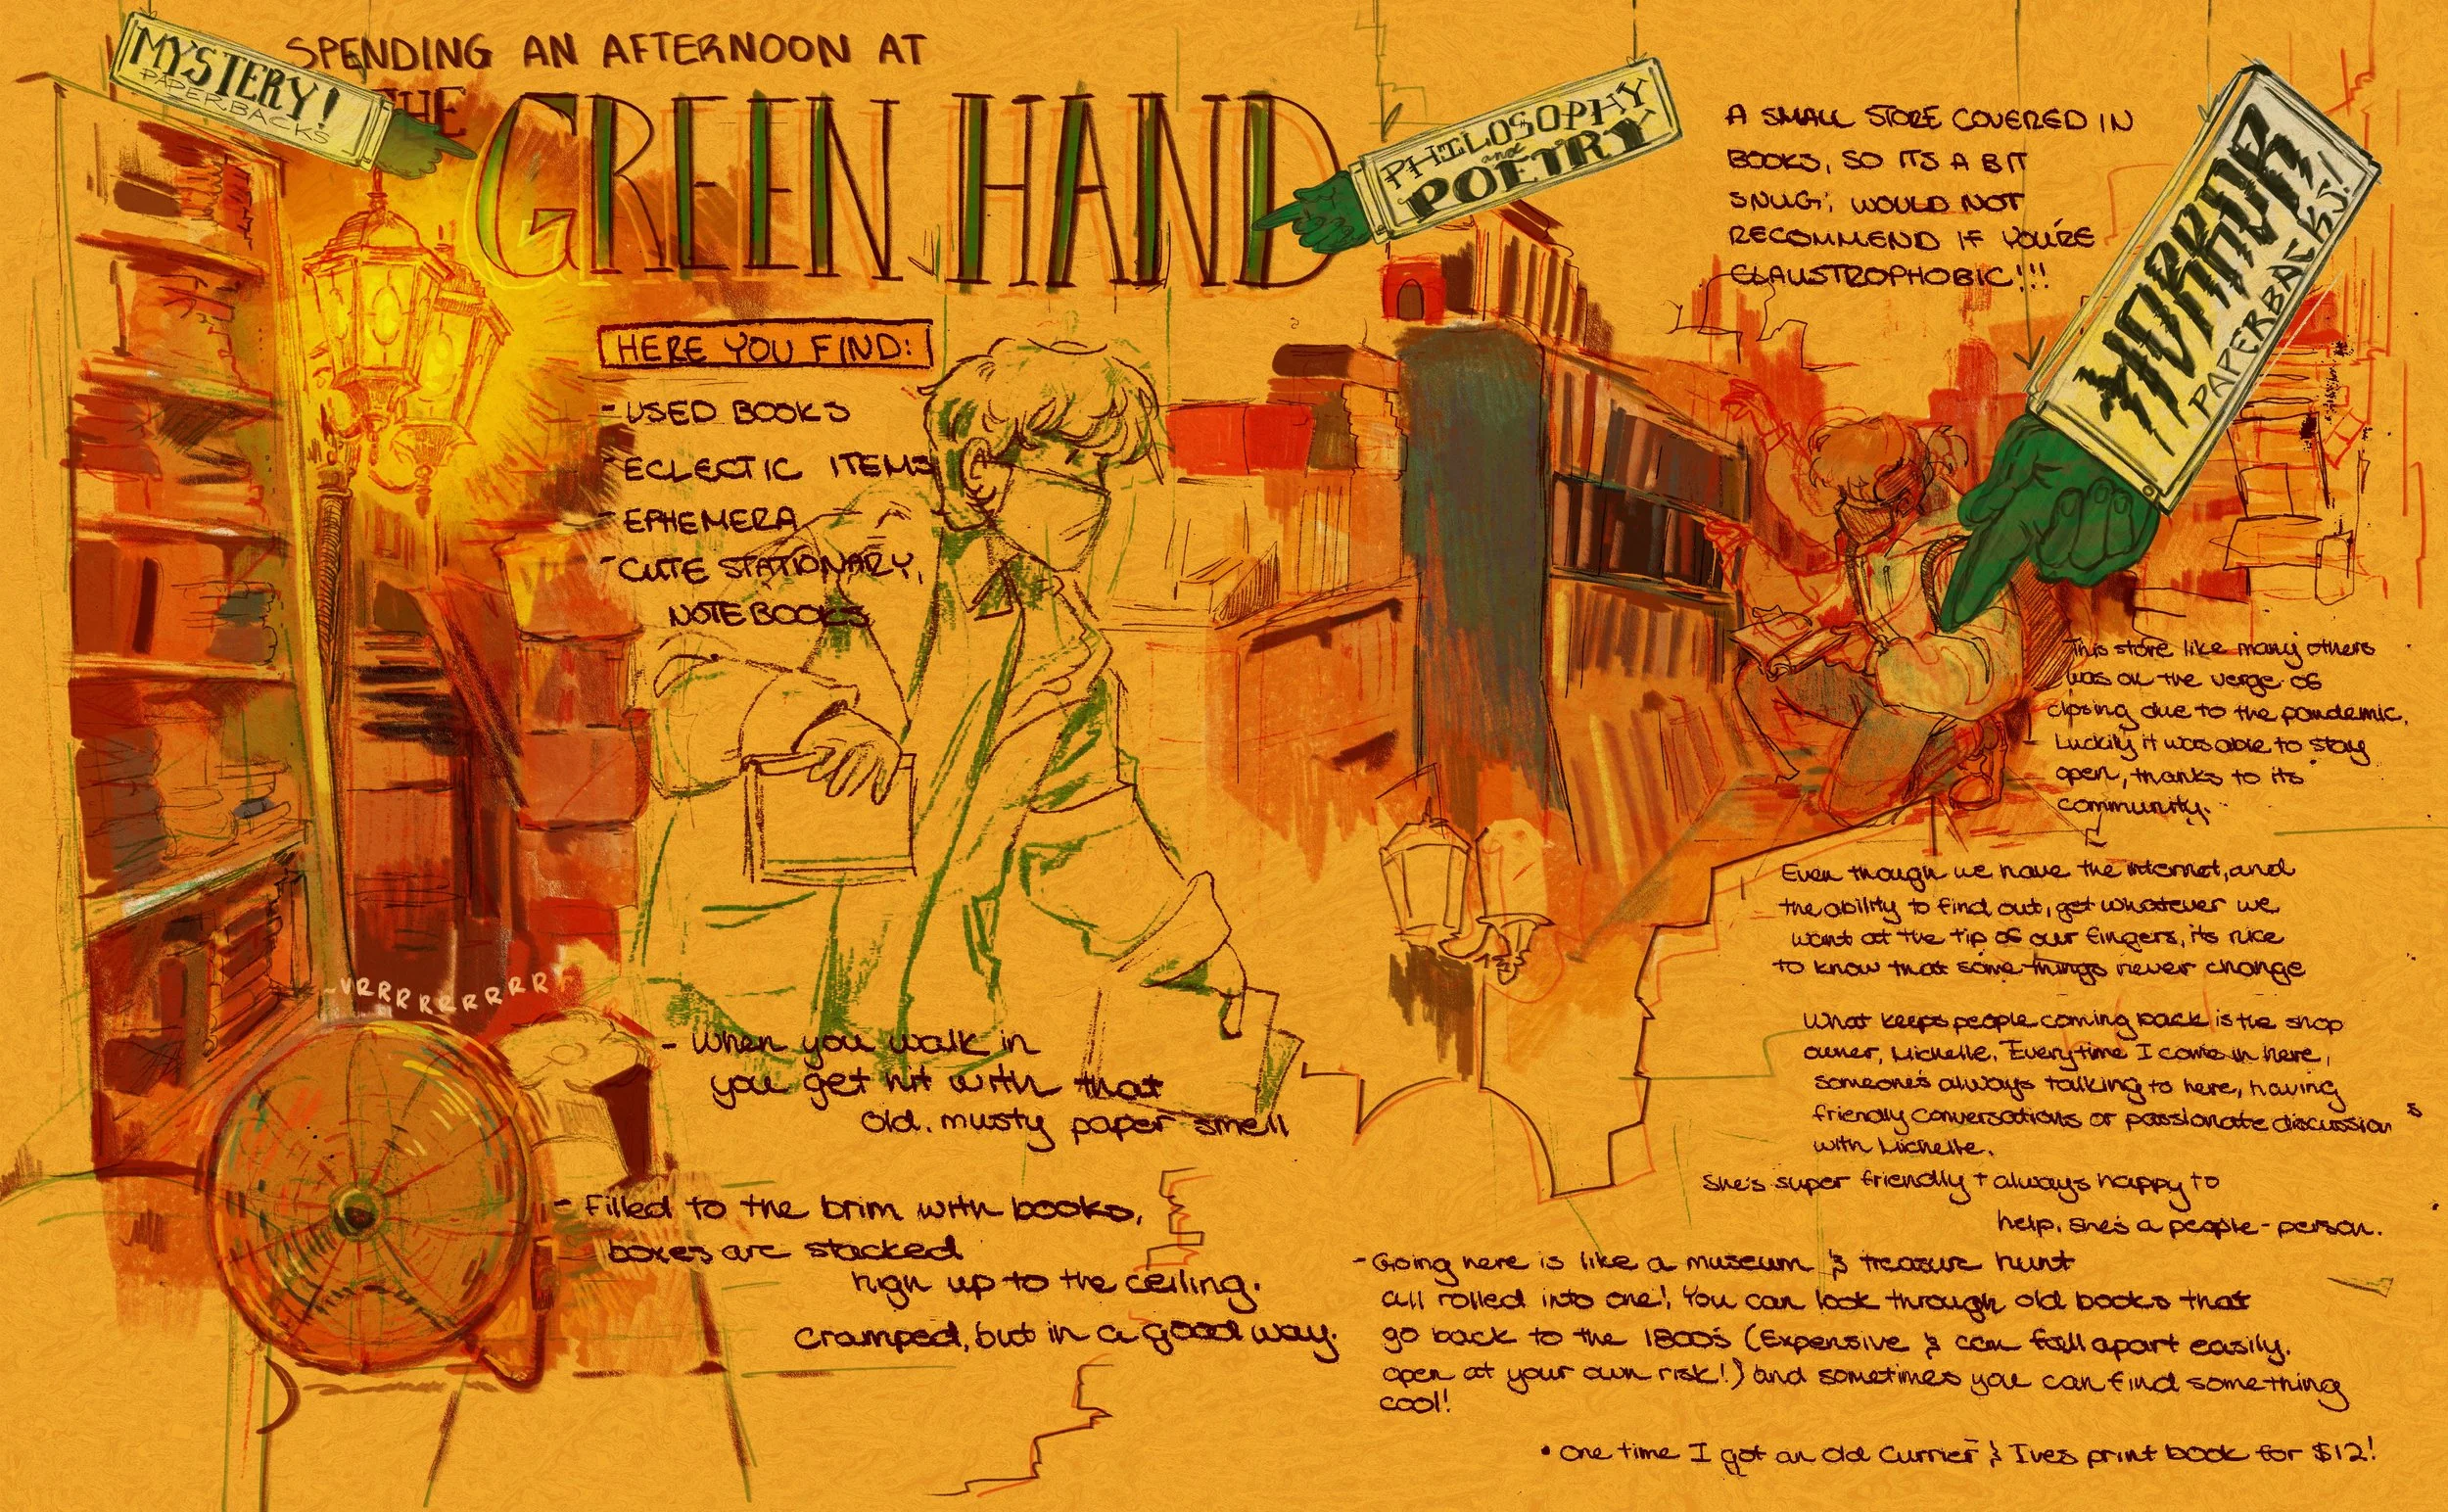 MYSTERY!
PAPERBACKS
SPENDING AN AFTERNOON AT
THE
GREEN HAND
PHILOSOPHY
and
POETRY
HORROR
PAPERBACKS!
A SMALL STORE COVERED IN
BOOKS, SO ITS A BIT
SNUG; WOULD NOT
RECOMMEND IF YOU'RE
CLAUSTROPHOBIC!!!
HERE YOU FIND:
- USED BOOKS
- ECLECTIC ITEMS
- EPHEMERA
- CUTE STATIONARY,
NOTEBOOKS
-VRRRRRRRRRR
- When you walk in
you get hit with that
old, musty paper smell
- Filled to the brim with books,
boxes are stacked
high up to the ceiling.
cramped, but in a good way.
This store like many others
was on the verge of
closing due to the pandemic.
Luckily it was able to stay
open, thanks to its
community.
Even though we have the internet, and
the ability to find out, get whatever we
want at the tip of our fingers, its nice
to know that some things never change
What keeps people coming back is the shop
owner, Michelle. Everytime I come in here,
someone's always talking to here, having
friendly conversations or passionate discussions
with Michelle.
She's super friendly + always happy to
help. she's a people-person.
- Going here is like a museum & treasure hunt
all rolled into one! You can look through old books that
go back to the 1800's (Expensive & can fall apart easily.
open at your own risk!) and sometimes you can find something
cool!
• One time I got an old Currier & Ives print book for $12!